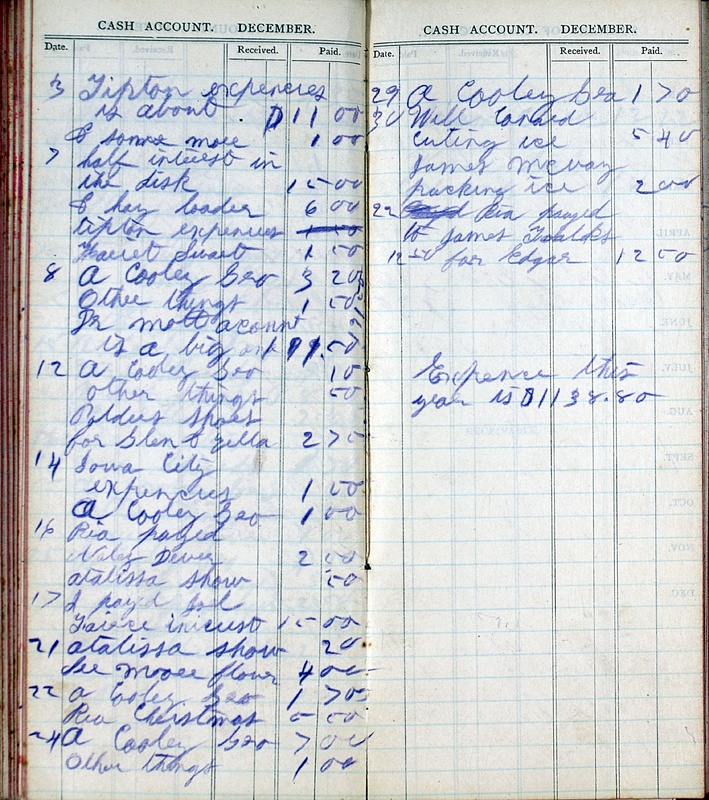 CASH ACCOUNT. DECEMBER.
Date. Received. Paid.
3 Tipton expencies
is about . $11 00
& some more 1 00
7 half interest in
the disk 15 00
& hay loader 6 00
tipton expencies
Sweet 1 50
8 A Cooley Gro 3 20
Other things 1 50
Dr mott acount
is a big one 91.50
12 A Cooley Gro 10
other things 50
shoes
for Glen & zella 2 70
14 Iowa City
expencies 1 50
A Cooley Gro 1 00
16 Ria payed
2 00
atalissa show 50
17 I payed
interest 15 00
21 atalissa show 20
flour 4 00
22 A Cooley Gro 1 70
Ria Christmas 5 50
24 A Cooley Gro 7 00
Other things 1 00
CASH ACCOUNT. DECEMBER.
Date. Received. Paid.
29 A Cooley Gro 1 70
30 Will
Cuting ice 5 40
James mcvay
packing ice 2 00
22 Ria payed
to James
12 50 for Edgar 12 50
Expence this
year is $1138.80